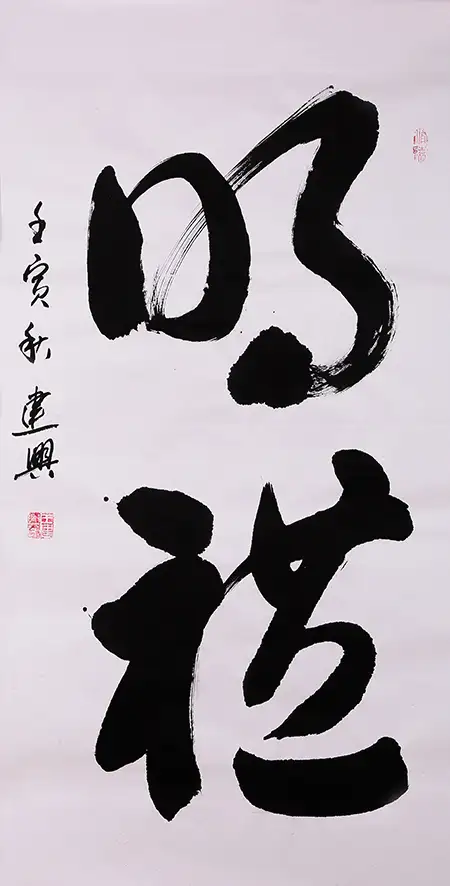 明禮
壬寅秋建興